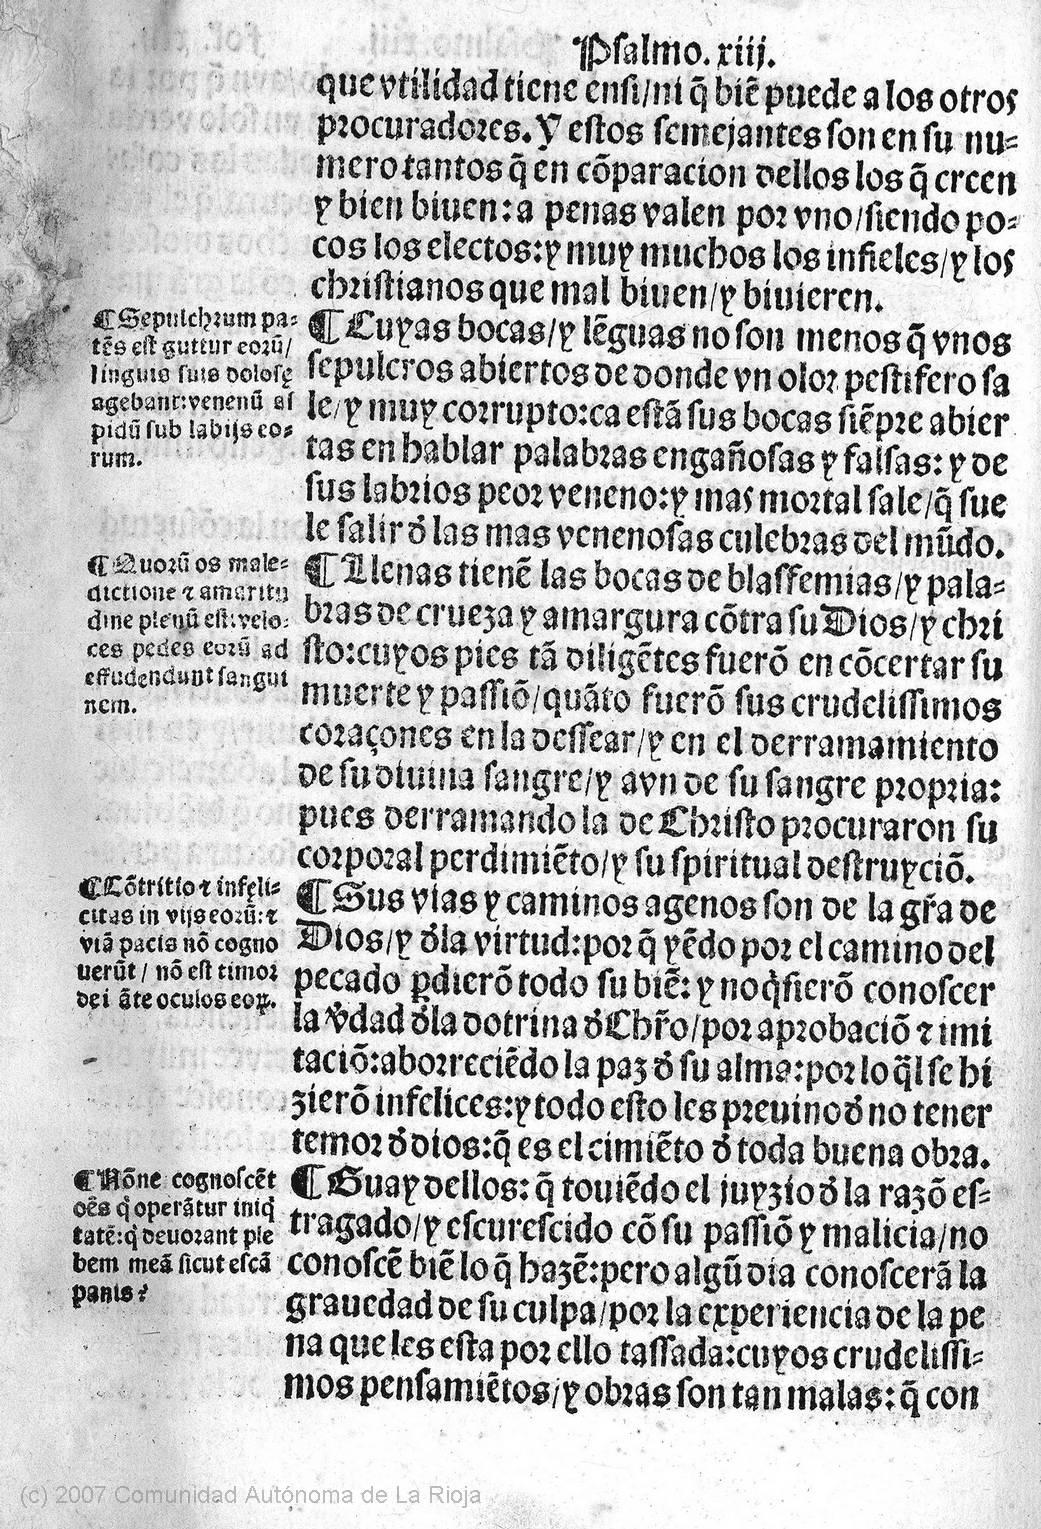 Psalmo. xiij.
que vtilidad tiene ensi/ni q̃ biẽ puede a los otros
procuradores. Y estos semejantes son en su nu-
mero tantos q̃ en cõparacion dellos los q̃ creen
y bien biuen: a penas valen por vno/siendo po-
cos los electos: y muy muchos los infieles/y los
christianos que mal biuen/y biuieren.
¶ Sepulchrum pa-
tẽs est guttur eorũ/
linguis suis dolosę
agebant: venenũ as
pidũ sub labijs eo-
rum.
¶ Cuyas bocas/y lẽguas no son menos q̃ vnos
sepulcros abiertos de donde vn olor pestifero sa
le/y muy corrupto: ca estã sus bocas siẽpre abier
tas en hablar palabras engañosas y falsas: y de
sus labrios peor veneno: y mas mortal sale/q̃ sue
le salir đ las mas venenosas culebras del mũdo.
¶ Quorũ os male-
dictione ⁊ amaritu
dine plenũ est: velo-
ces pedes eorũ ad
effudendunt sangui
nem.
¶ Llenas tienẽ las bocas de blasfemias/y pala-
bras de crueza y amargura cõtra su Dios/y chri
sto: cuyos pies tã diligẽtes fuerõ en cõcertar su
muerte y passiõ/quãto fuerõ sus crudelissimos
coraçones en la dessear/y en el derramamiento
de su diuina sangre/y avn de su sangre propria:
pues derramando la de Christo procuraron su
corporal perdimiẽto/y su spiritual destruyciõ.
¶ Cõtritio ⁊ infęli-
citas in vijs eorũ: ⁊
viã pacis nõ cogno
uerũt / nõ est timor
dei ãte oculos eoꝝ.
¶ Sus vias y caminos agenos son de la gr̃a de
Dios/y đla virtud: por q̃ yẽdo por el camino del
pecado ꝑdierõ todo su biẽ: y no q̃sierõ conoscer
la v̓dad đla dotrina đ Chr̃o/por aprobaciõ ⁊ imi
taciõ: aborreciẽdo la paz đ su alma: por lo q̃l se hi
zierõ infelices: y todo esto les preuino đ no tener
temor đ dios: q̃ es el cimiẽto đ toda buena obra.
¶ Nõne cognoscẽt
oẽs q̓ operãtur iniq̓
tatẽ: q̓ deuorant ple
bem meã sicut escã
panis?
¶ Guay dellos: q̃ touiẽdo el juyzio đ la razõ es-
tragado/y escurescido cõ su passiõ y malicia/no
conoscẽ biẽ lo q̃ hazẽ: pero algũ dia conoscerã la
grauedad de su culpa/por la experiencia de la pe
na que les esta por ello tassada: cuyos crudelissi-
mos pensamiẽtos/y obras son tan malas: q̃ con
(c) 2007 Comunidad Autónoma de La Rioja